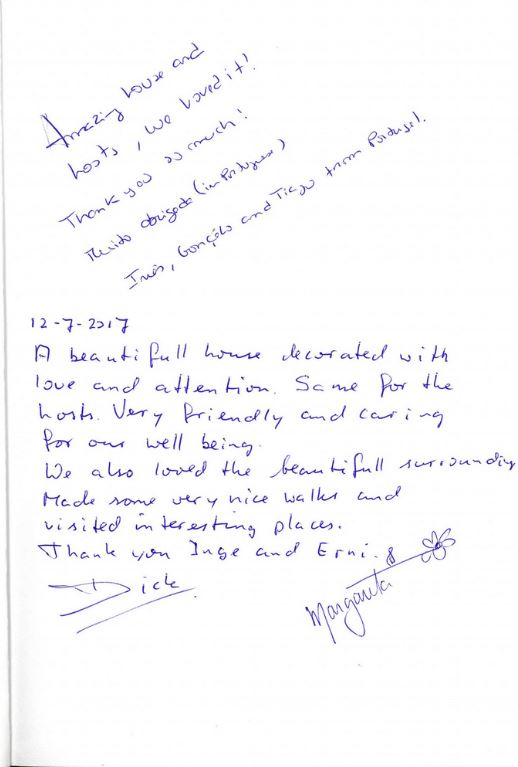 Amazing house and
hosts, we loved it!
Thank you so much!
Muido obrigada (in Portuguese)
Inês, Gonçalo and Tiago from Portugal.
12-7-2017
A beautifull house decorated with
love and attention. Same for the
hosts. Very friendly and caring
for our well being.
We also loved the beautifull surrounding
Made some very nice walks and
visited interesting places.
Thank you Inge and Erni.
Dick
Margarita